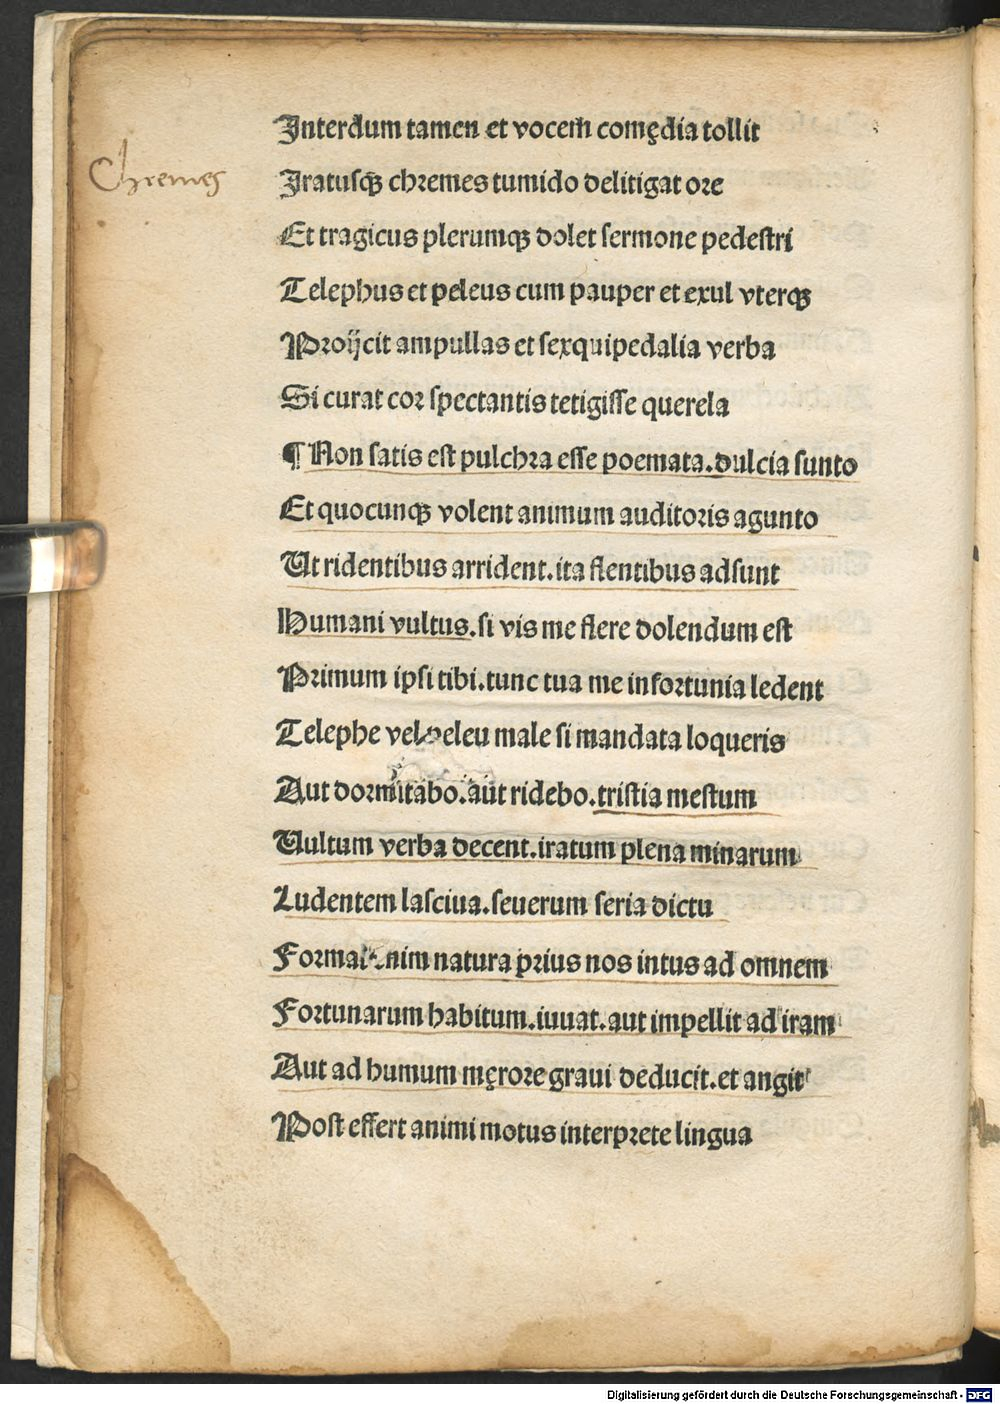 Chremes
Interdum tamen et vocem comędia tollit
Iratusqꝫ chremes tumido delitigat ore
Et tragicus plerumqꝫ dolet sermone pedestri
Telephus et peleus cum pauper et exul vterqꝫ
Proijcit ampullas et sexquipedalia verba
Si curat cor spectantis tetigisse querela
¶ Non satis est pulchra esse poemata. dulcia sunto
Et quocunqꝫ volent animum auditoris agunto
Ut ridentibus arrident. ita flentibus adsunt
Humani vultus. si vis me flere dolendum est
Primum ipsi tibi. tunc tua me infortunia ledent
Telephe vel peleu male si mandata loqueris
Aut dormitabo. aut ridebo. tristia mestum
Uultum verba decent. iratum plena minarum
Ludentem lasciua. seuerum seria dictu
Format enim natura prius nos intus ad omnem
Fortunarum habitum. iuuat. aut impellit ad iram
Aut ad humum męrore graui deducit. et angit
Post effert animi motus interprete lingua
Digitalisierung gefördert durch die Deutsche Forschungsgemeinschaft - DFG